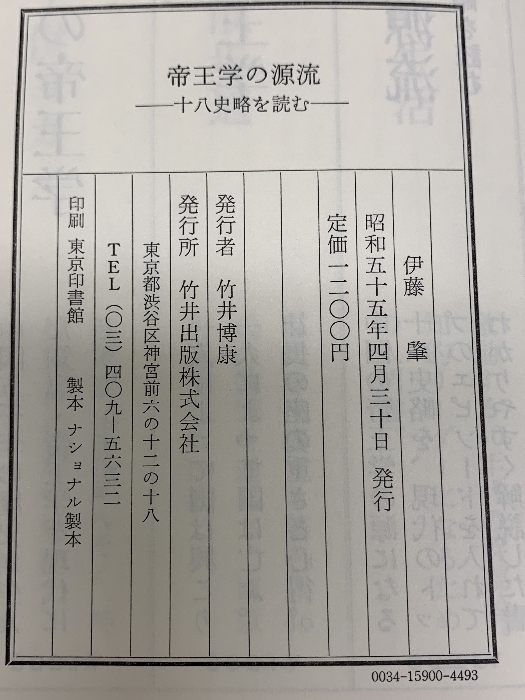 帝王学の源流
―十八史略を読む―
伊藤 肇
昭和五十五年四月三十日 発行
定価一二〇〇円
発行者 竹井博康
発行所 竹井出版株式会社
東京都渋谷区神宮前六の十二の十八
TEL（〇三）四〇九―五六三二
印刷 東京印書館 製本 ナショナル製本
0034-15900-4493